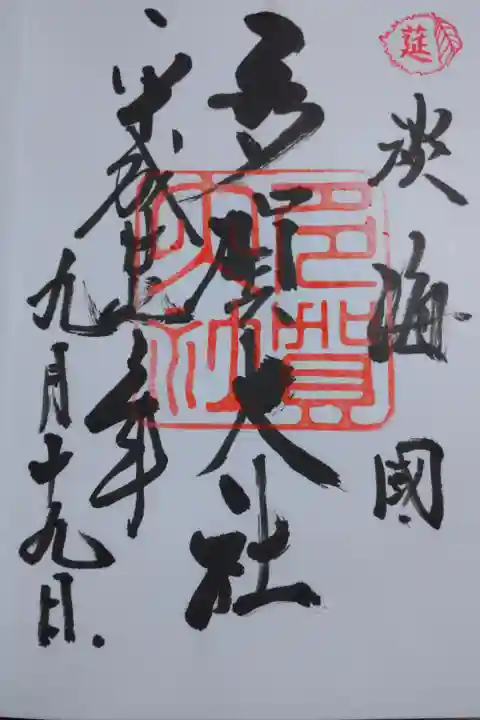 莚
淡海國
多賀大社
多賀
大社
平成
年
九月十九日